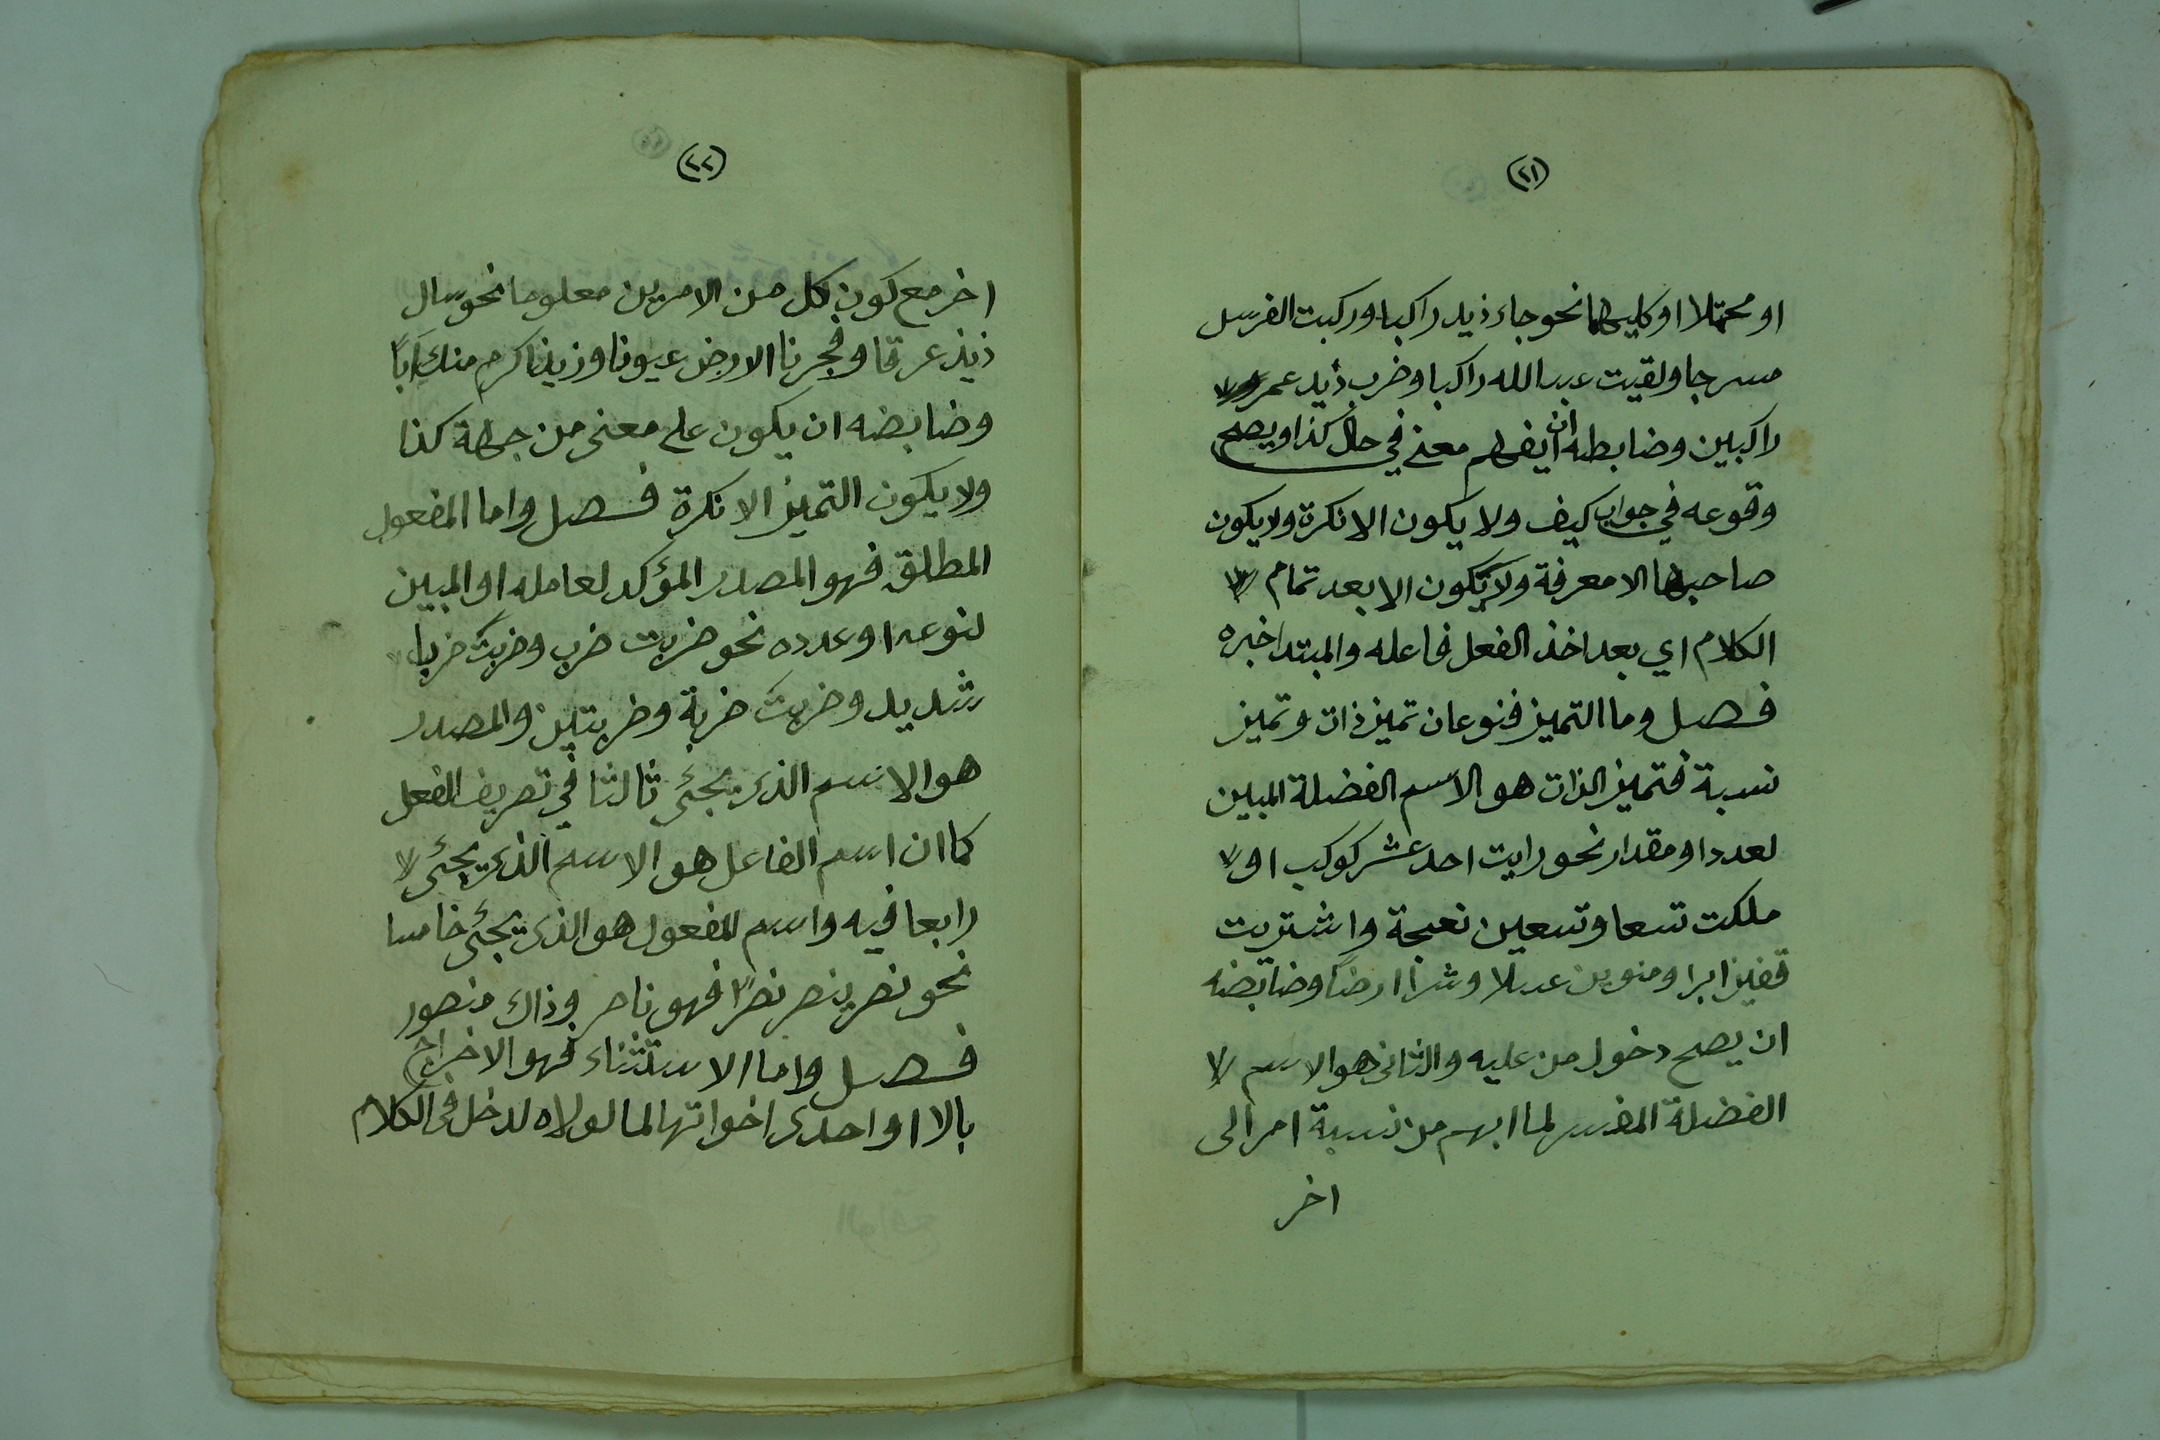 (٢١)
او محتملا او كليهما نحو جاء زيد راكبا وركبت الفرس
مسرجا ولقيت عبد الله راكبا وضرب زيد عمرو
راكبين وضابطه ان يفهم معنى في حال كذا ويصح
وقوعه في جواب كيف ولا يكون الا نكرة ولا يكون
صاحبها الا معرفة ولا تكون الا بعد تمام
الكلام اي بعد اخذ الفعل فاعله والمبتدا خبره
فصل وما التميز فنوعان تميز ذات وتميز
نسبة فتميز الذات هو الاسم الفضلة المبين
لعدد او مقدار نحو رايت احد عشر كوكب او
ملكت تسعا وتسعين نعجة واشتريت
قفيزا برا ومنوين عسلا وشبرا ارضًا وضابضه
ان يصح دخول من عليه والثاني هو الاسم
الفضلة المفسر لما ابهم من نسبة امر الى
اخر
(٢٢)
اخر مع كون كل من الامرين معلوما نحو سال
زيذ عرقا وفجرنا الارض عيونا وزيدا كرم منك ابًا
وضابضه ان يكون على معنى من جهة كذا
ولا يكون التميز الا نكرة فصل واما المفعول
المطلق فهو المصدر المؤكد لعامله او المبين
لنوعه او عدده نحو ضربت ضرب وضربت ضربا
شديد وضربت ضربة وضربتين والمصدر
هو الاسم الذى يجئى ثالثا في تصريف الفعل
كما ان اسم الفاعل هو الاسم الذى يجئى
رابعا فيه واسم المفعول هو الذى يجئى خامسا
نحو نصر ينصر نصرًا فهو ناصر وذاك منصور
فصل واما الاستثناء فهو الاخراج
بالا او احدى اخواتها لما لولاه لدخل فى الكلام